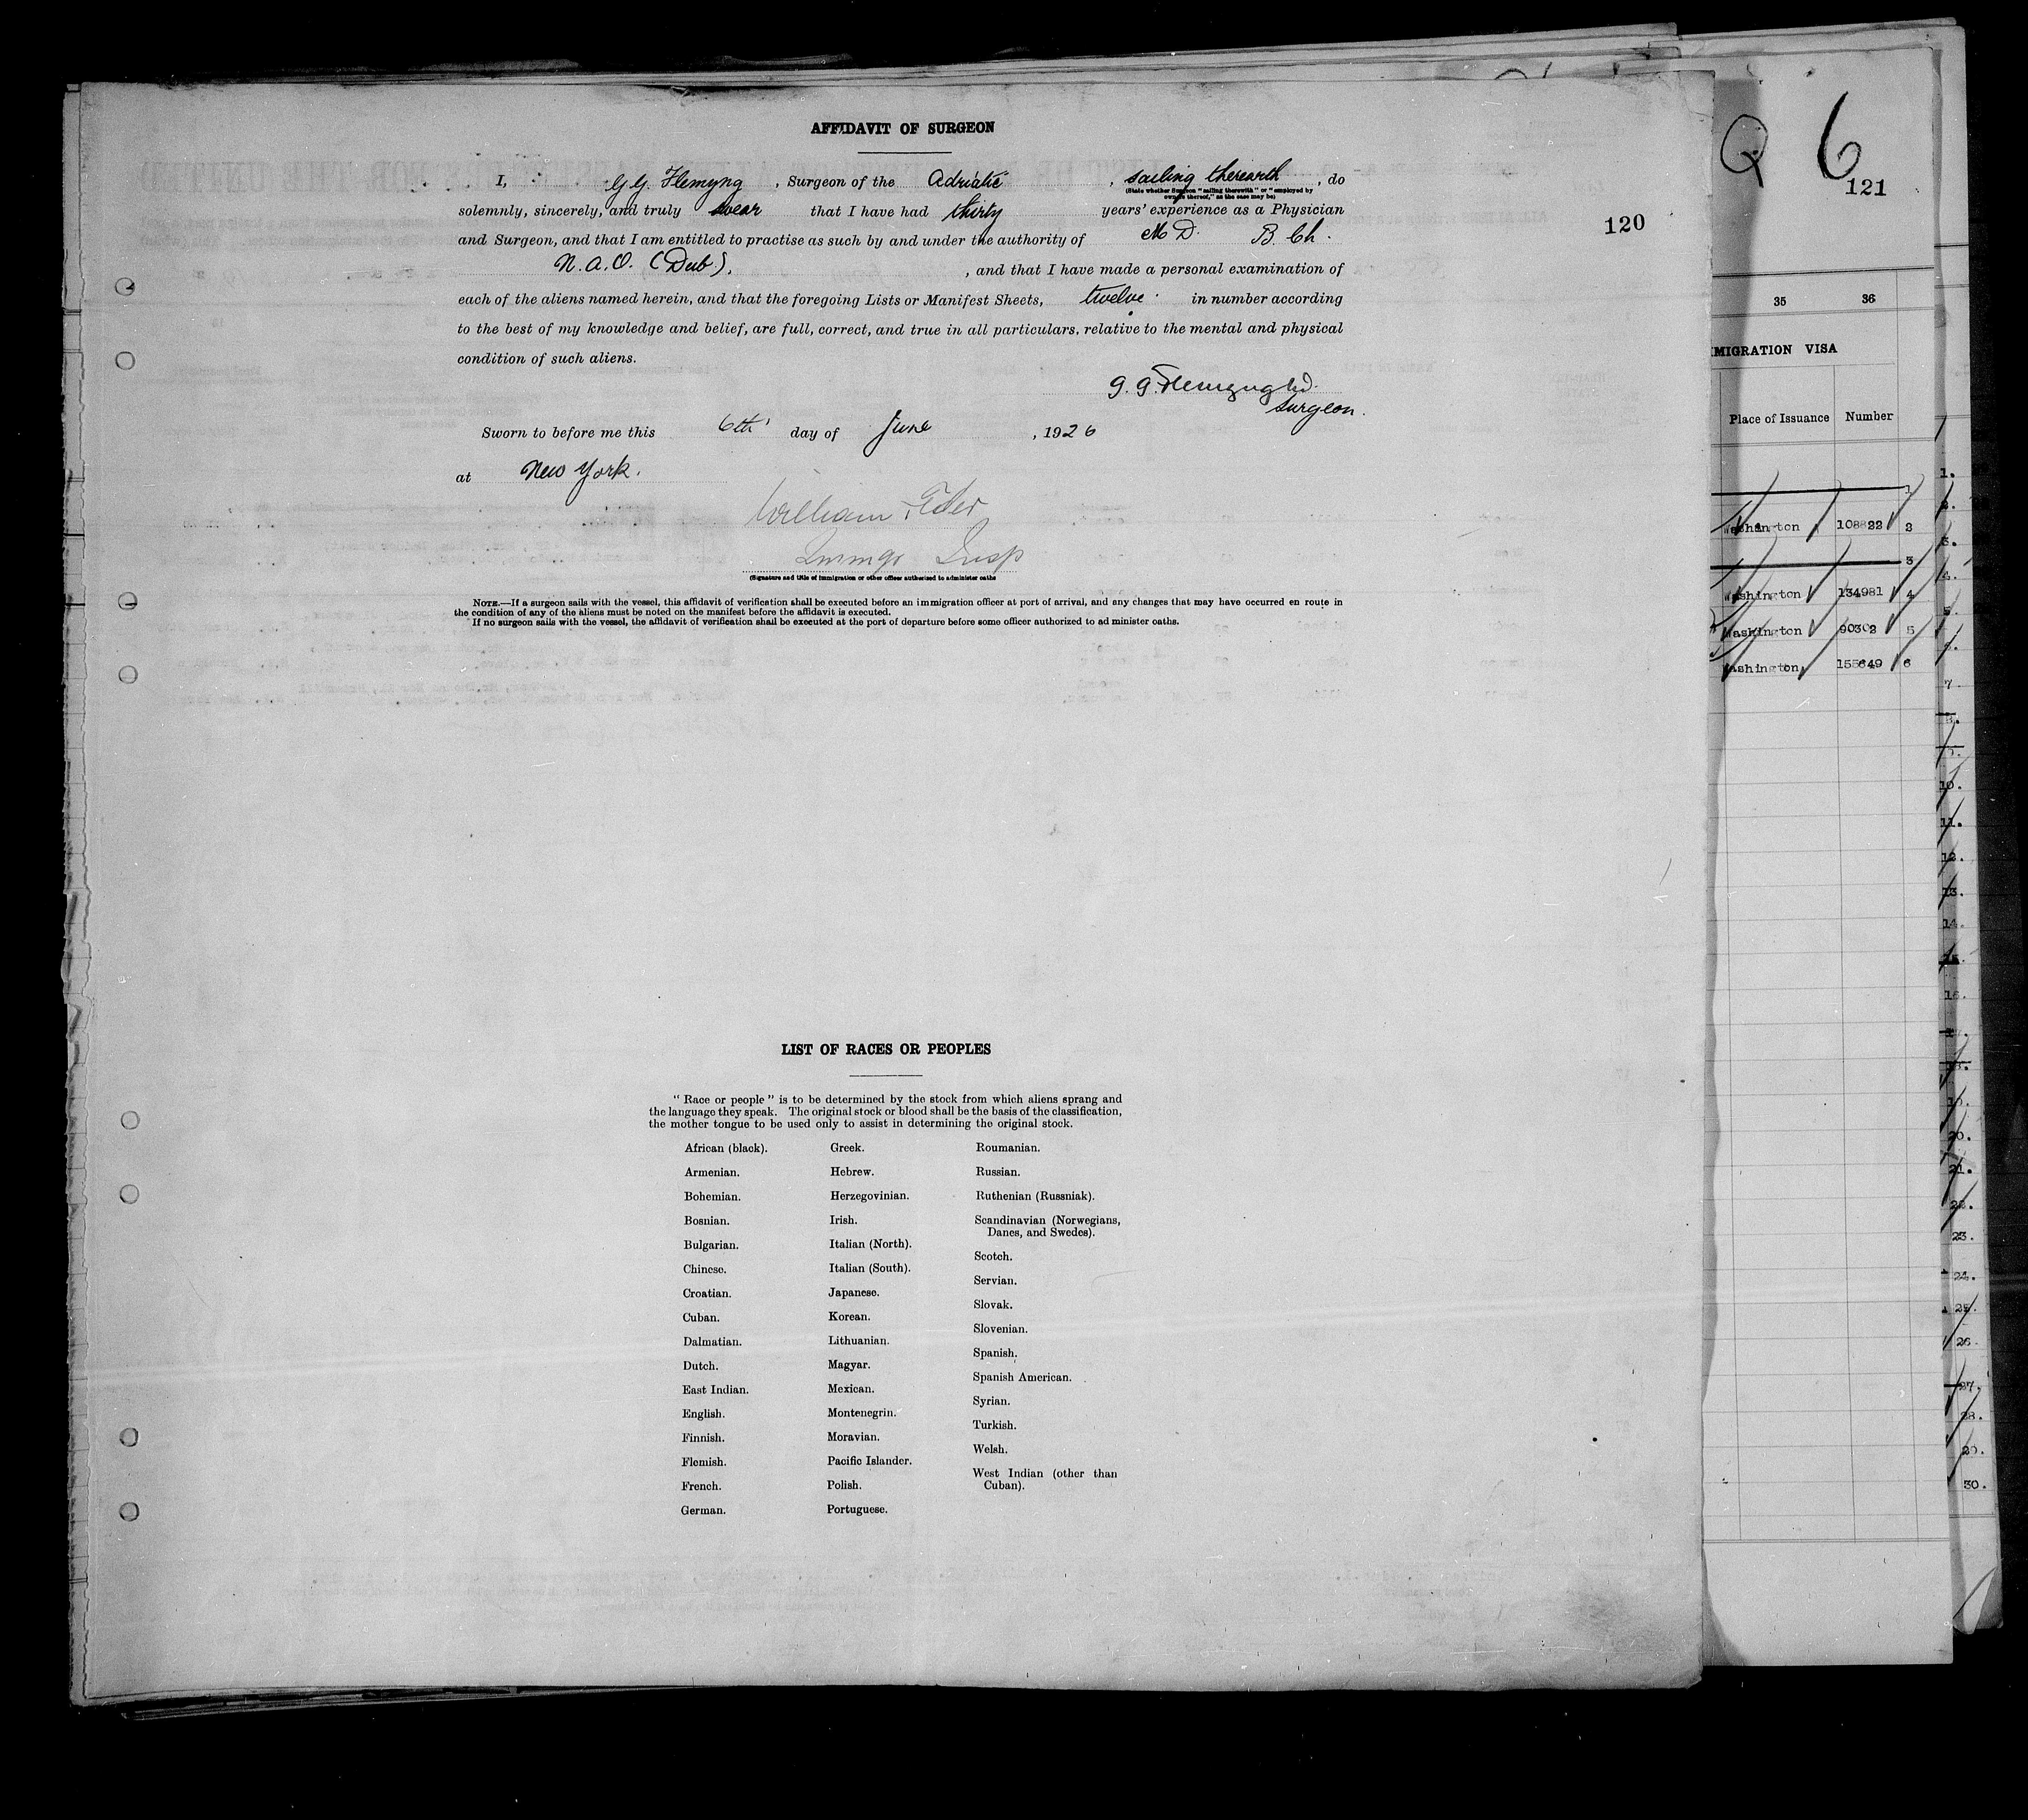 AFFIDAVIT OF SURGEON
I, G. G. Flemyng, Surgeon of the Adriatic, sailing therewith, do
(State whether Surgeon "sailing therewith" or "employed by
owners thereof," as the case may be)
solemnly, sincerely, and truly swear that I have had thirty years' experience as a Physician
and Surgeon, and that I am entitled to practise as such by and under the authority of M D. B. Ch.
(Dub), and that I have made a personal examination of
each of the aliens named herein, and that the foregoing Lists or Manifest Sheets, twelve in number according
to the best of my knowledge and belief, are full, correct, and true in all particulars, relative to the mental and physical
condition of such aliens.
G. G. Flemyng
Surgeon.
Sworn to before me this 6th day of June, 1926
at New York.
William
Immgr Insp
(Signature and title of immigration or other officer authorized to administer oaths
NOTE.—If a surgeon sails with the vessel, this affidavit of verification shall be executed before an immigration officer at port of arrival, and any changes that may have occurred en route in
the condition of any of the aliens must be noted on the manifest before the affidavit is executed.
If no surgeon sails with the vessel, the affidavit of verification shall be executed at the port of departure before some officer authorized to ad minister oaths.
120
LIST OF RACES OR PEOPLES
"Race or people" is to be determined by the stock from which aliens sprang and
the language they speak. The original stock or blood shall be the basis of the classification,
the mother tongue to be used only to assist in determining the original stock.
African (black).
Armenian.
Bohemian.
Bosnian.
Bulgarian.
Chinese.
Croatian.
Cuban.
Dalmatian.
Dutch.
East Indian.
English.
Finnish.
Flemish.
French.
German.
Greek.
Hebrew.
Herzegovinian.
Irish.
Italian (North).
Italian (South).
Japanese.
Korean.
Lithuanian.
Magyar.
Mexican.
Montenegrin.
Moravian.
Pacific Islander.
Polish.
Portuguese.
Roumanian.
Russian.
Ruthenian (Russniak).
Scandinavian (Norwegians,
Danes, and Swedes).
Scotch.
Servian.
Slovak.
Slovenian.
Spanish.
Spanish American.
Syrian.
Turkish.
Welsh.
West Indian (other than
Cuban).
6
121
35 36
MIGRATION VISA
Place of Issuance Number
1
Washington 108822 2
3
Washington 134981 4
Washington 5
ashington 155649 6
1.
2.
3.
4.
5.
6.
7.
8.
9.
10.
11.
12.
13.
14.
15.
16.
17.
18.
19.
20.
21.
22.
23.
24.
25.
26.
27.
28.
29.
30.